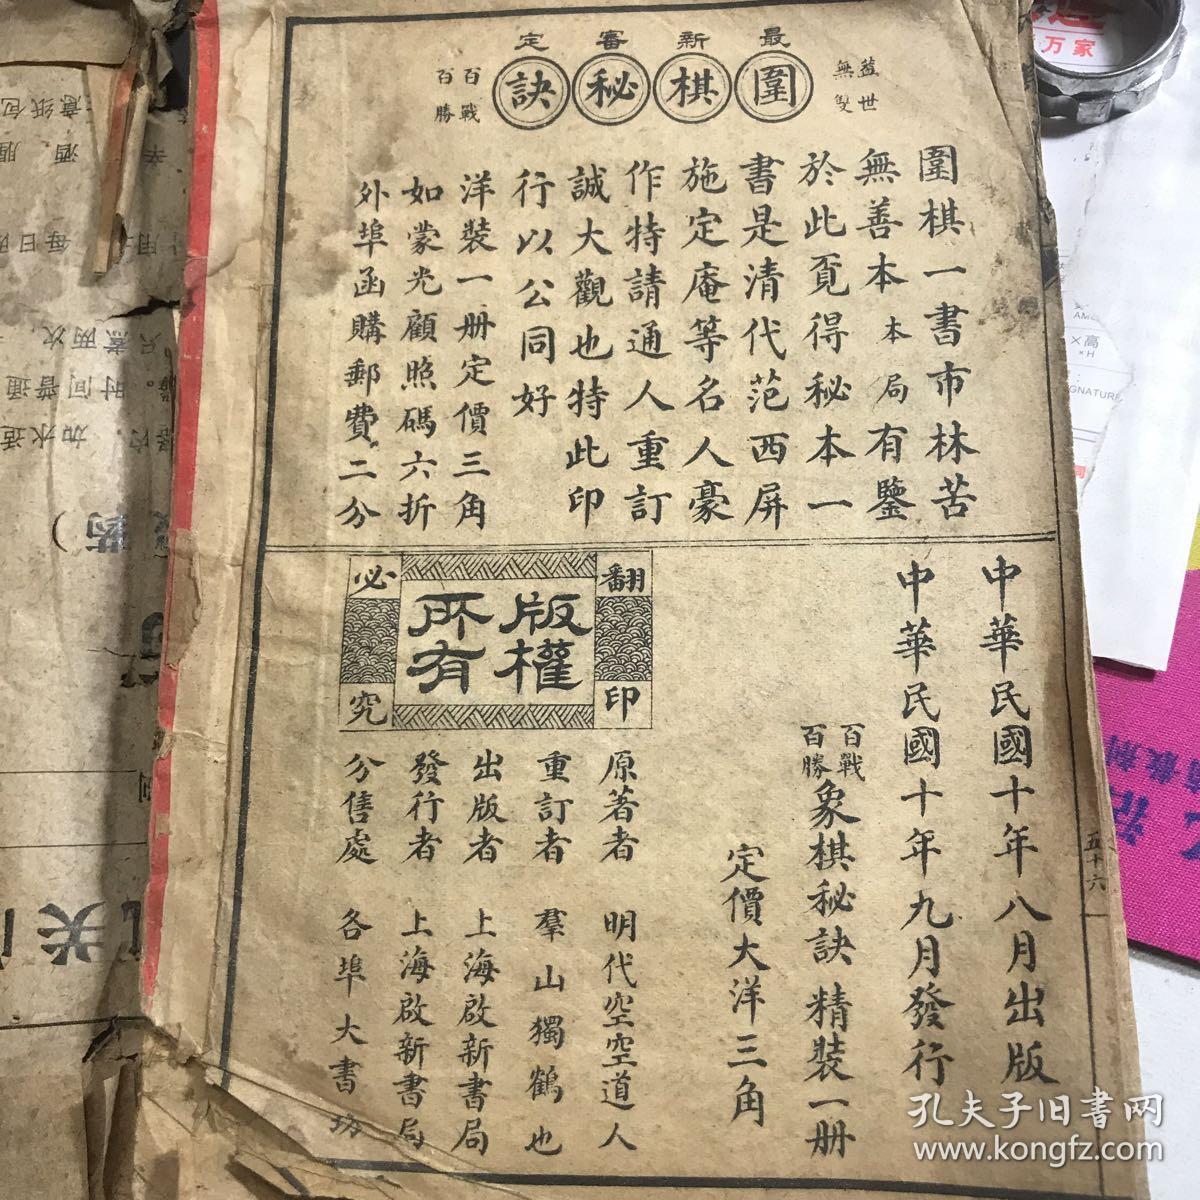 最新審定
蓋世無雙
圍棋秘訣
百戰百勝
圍棋一書市林苦
無善本本局有鑒
於此覓得秘本一
書是清代范西屏
施定庵等名人豪
作特請通人重訂
誠大觀也特此印
行以公同好
洋裝一册定價三角
如蒙光顧照碼六折
外埠函購郵費二分
中華民國十年八月出版
中華民國十年九月發行
百戰百勝象棋秘訣精裝一册
定價大洋三角
翻印必究
版權所有
原著者 明代空空道人
重訂者 羣山獨鶴也
出版者 上海啟新書局
發行者 上海啟新書局
分售處 各埠大書坊
五十六
万家
×高
×H
GNATURE
孔夫子旧书网
www.kongfz.com